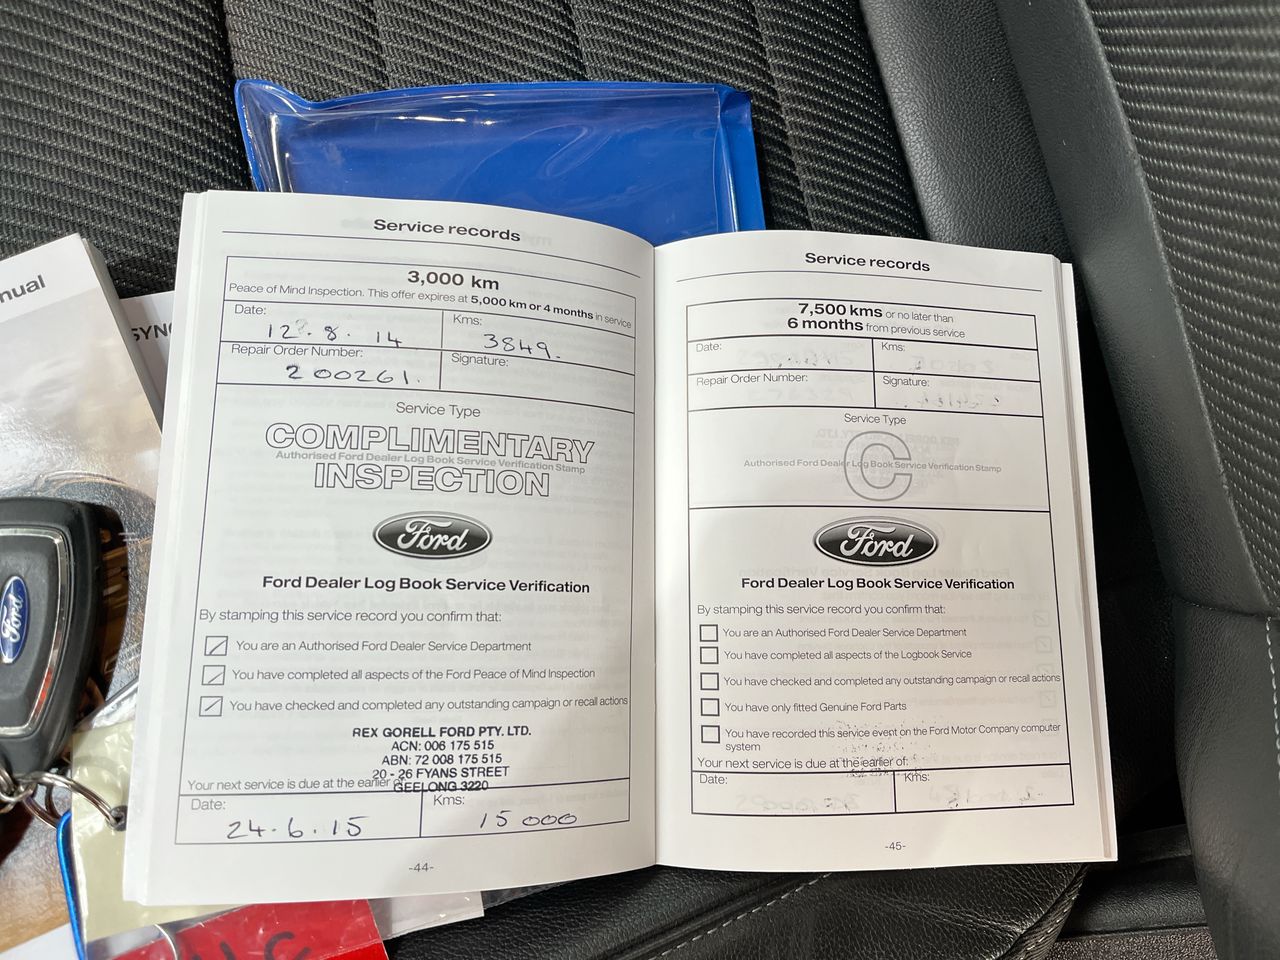 nual
SYNC
Service records
3,000 km
Peace of Mind Inspection. This offer expires at 5,000 km or 4 months in service
Date:
12.8.14
Kms:
3849.
Repair Order Number:
200261.
Signature:
Service Type
COMPLIMENTARY
Authorised Ford Dealer Log Book Service Verification Stamp
INSPECTION
Ford
Ford Dealer Log Book Service Verification
By stamping this service record you confirm that:
You are an Authorised Ford Dealer Service Department
You have completed all aspects of the Ford Peace of Mind Inspection
You have checked and completed any outstanding campaign or recall actions
REX GORELL FORD PTY. LTD.
ACN: 006 175 515
ABN: 72 008 175 515
20 - 26 FYANS STREET
Your next service is due at the earlier of:
GEELONG 3220
Date:
24.6.15
Kms:
15000
-44-
Service records
7,500 kms or no later than
6 months from previous service
Date:
Kms:
Repair Order Number:
Signature:
Service Type
C
Authorised Ford Dealer Log Book Service Verification Stamp
Ford
Ford Dealer Log Book Service Verification
By stamping this service record you confirm that:
You are an Authorised Ford Dealer Service Department
You have completed all aspects of the Logbook Service
You have checked and completed any outstanding campaign or recall actions
You have only fitted Genuine Ford Parts
You have recorded this service event on the Ford Motor Company computer
system
Your next service is due at the earlier of:
Date:
Kms:
-45-
Ford